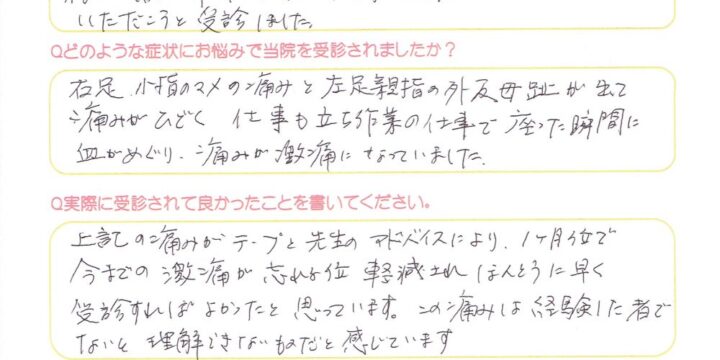 いただこうと受診しました。
Qどのような症状にお悩みで当院を受診されましたか？
右足、小指のマメの痛みと左足親指の外反母趾が出て
痛みがひどく 仕事も立ち作業の仕事で座った瞬間に
血がめぐり、痛みが激痛になっていました。
Q実際に受診されて良かったことを書いてください。
上記の痛みがテープと先生のアドバイスにより、1ヶ月位で
今までの激痛が忘れる位 軽減されほんとうに早く
受診すればよかったと思っています。この痛みは経験した者で
ないと理解できないものだと感じています